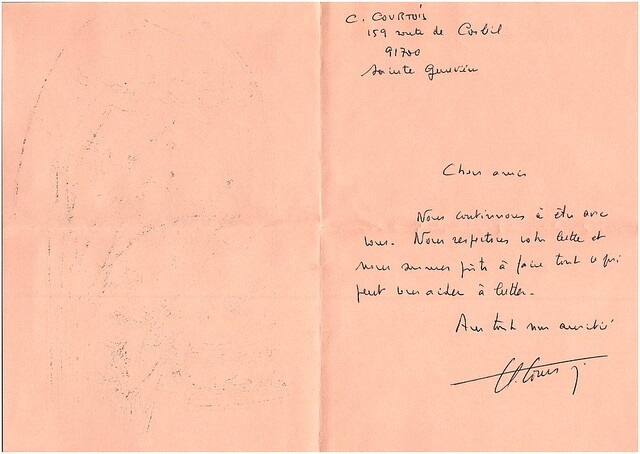 C. COURTOIS
159 route de Corbeil
91700
Sainte Geneviève
Chers amis
Nous continuons à être avec
vous. Nous respectons votre lutte et
nous sommes prêts à faire tout ce qui
peut vous aider à lutter.
Avec toute mon amitié
C. Courtois